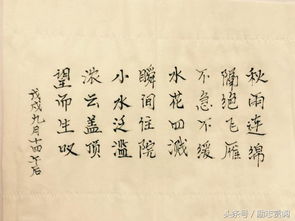 秋雨连绵
隔绝飞雁
不急不缓
水花四溅
瞬间住院
小水泛滥
浓云盖顶
望而生叹
戊戌九月十四午后
头条号／励志资阅